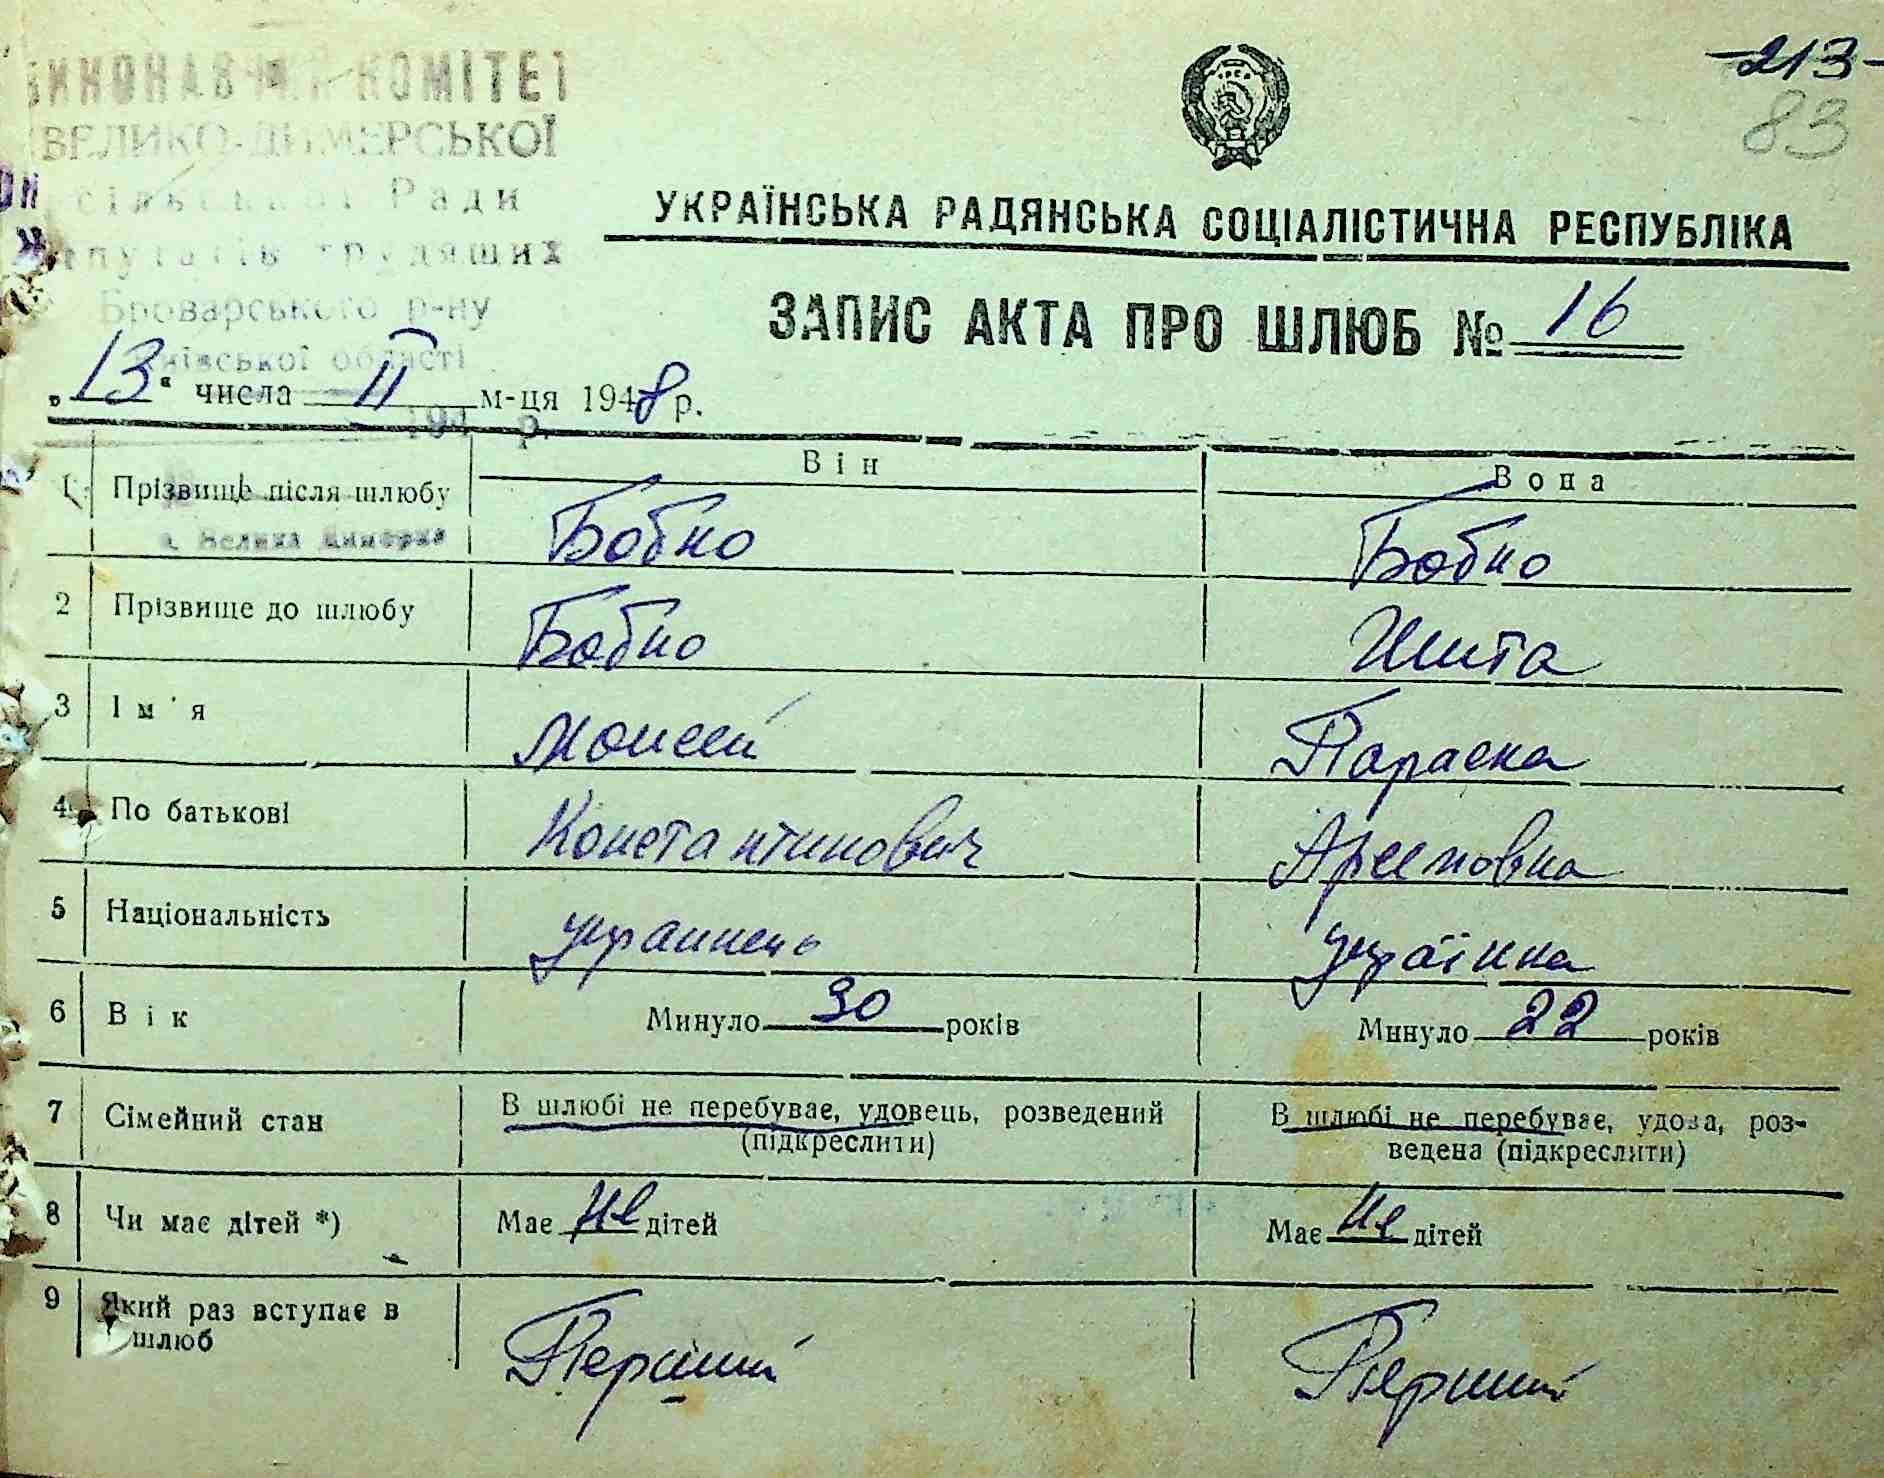 -213-
83
ВИКОНАВЧИЙ КОМІТЕТ
ВЕЛИКО-ДИМЕРСЬКОЇ
сільської Ради
депутатів трудящих
Броварського р-ну
Київської області
194 р.
с. Велика Димерка
УКРАЇНСЬКА РАДЯНСЬКА СОЦІАЛІСТИЧНА РЕСПУБЛІКА
ЗАПИС АКТА ПРО ШЛЮБ № 16
„13" числа II м-ця 1948 р.
Він Вона
1 Прізвище після шлюбу Бобко Бобко
2 Прізвище до шлюбу Бобко Шита
3 Ім'я Моисей Параска
4 По батькові Константинович Арсеновна
5 Національність украинець українка
6 Вік Минуло 30 років Минуло 22 років
7 Сімейний стан В шлюбі не перебуває, удовець, розведений (підкреслити) В шлюбі не перебуває, удова, роз-
ведена (підкреслити)
8 Чи має дітей *) Має не дітей Має не дітей
9 Який раз вступає в
шлюб Перший Перший